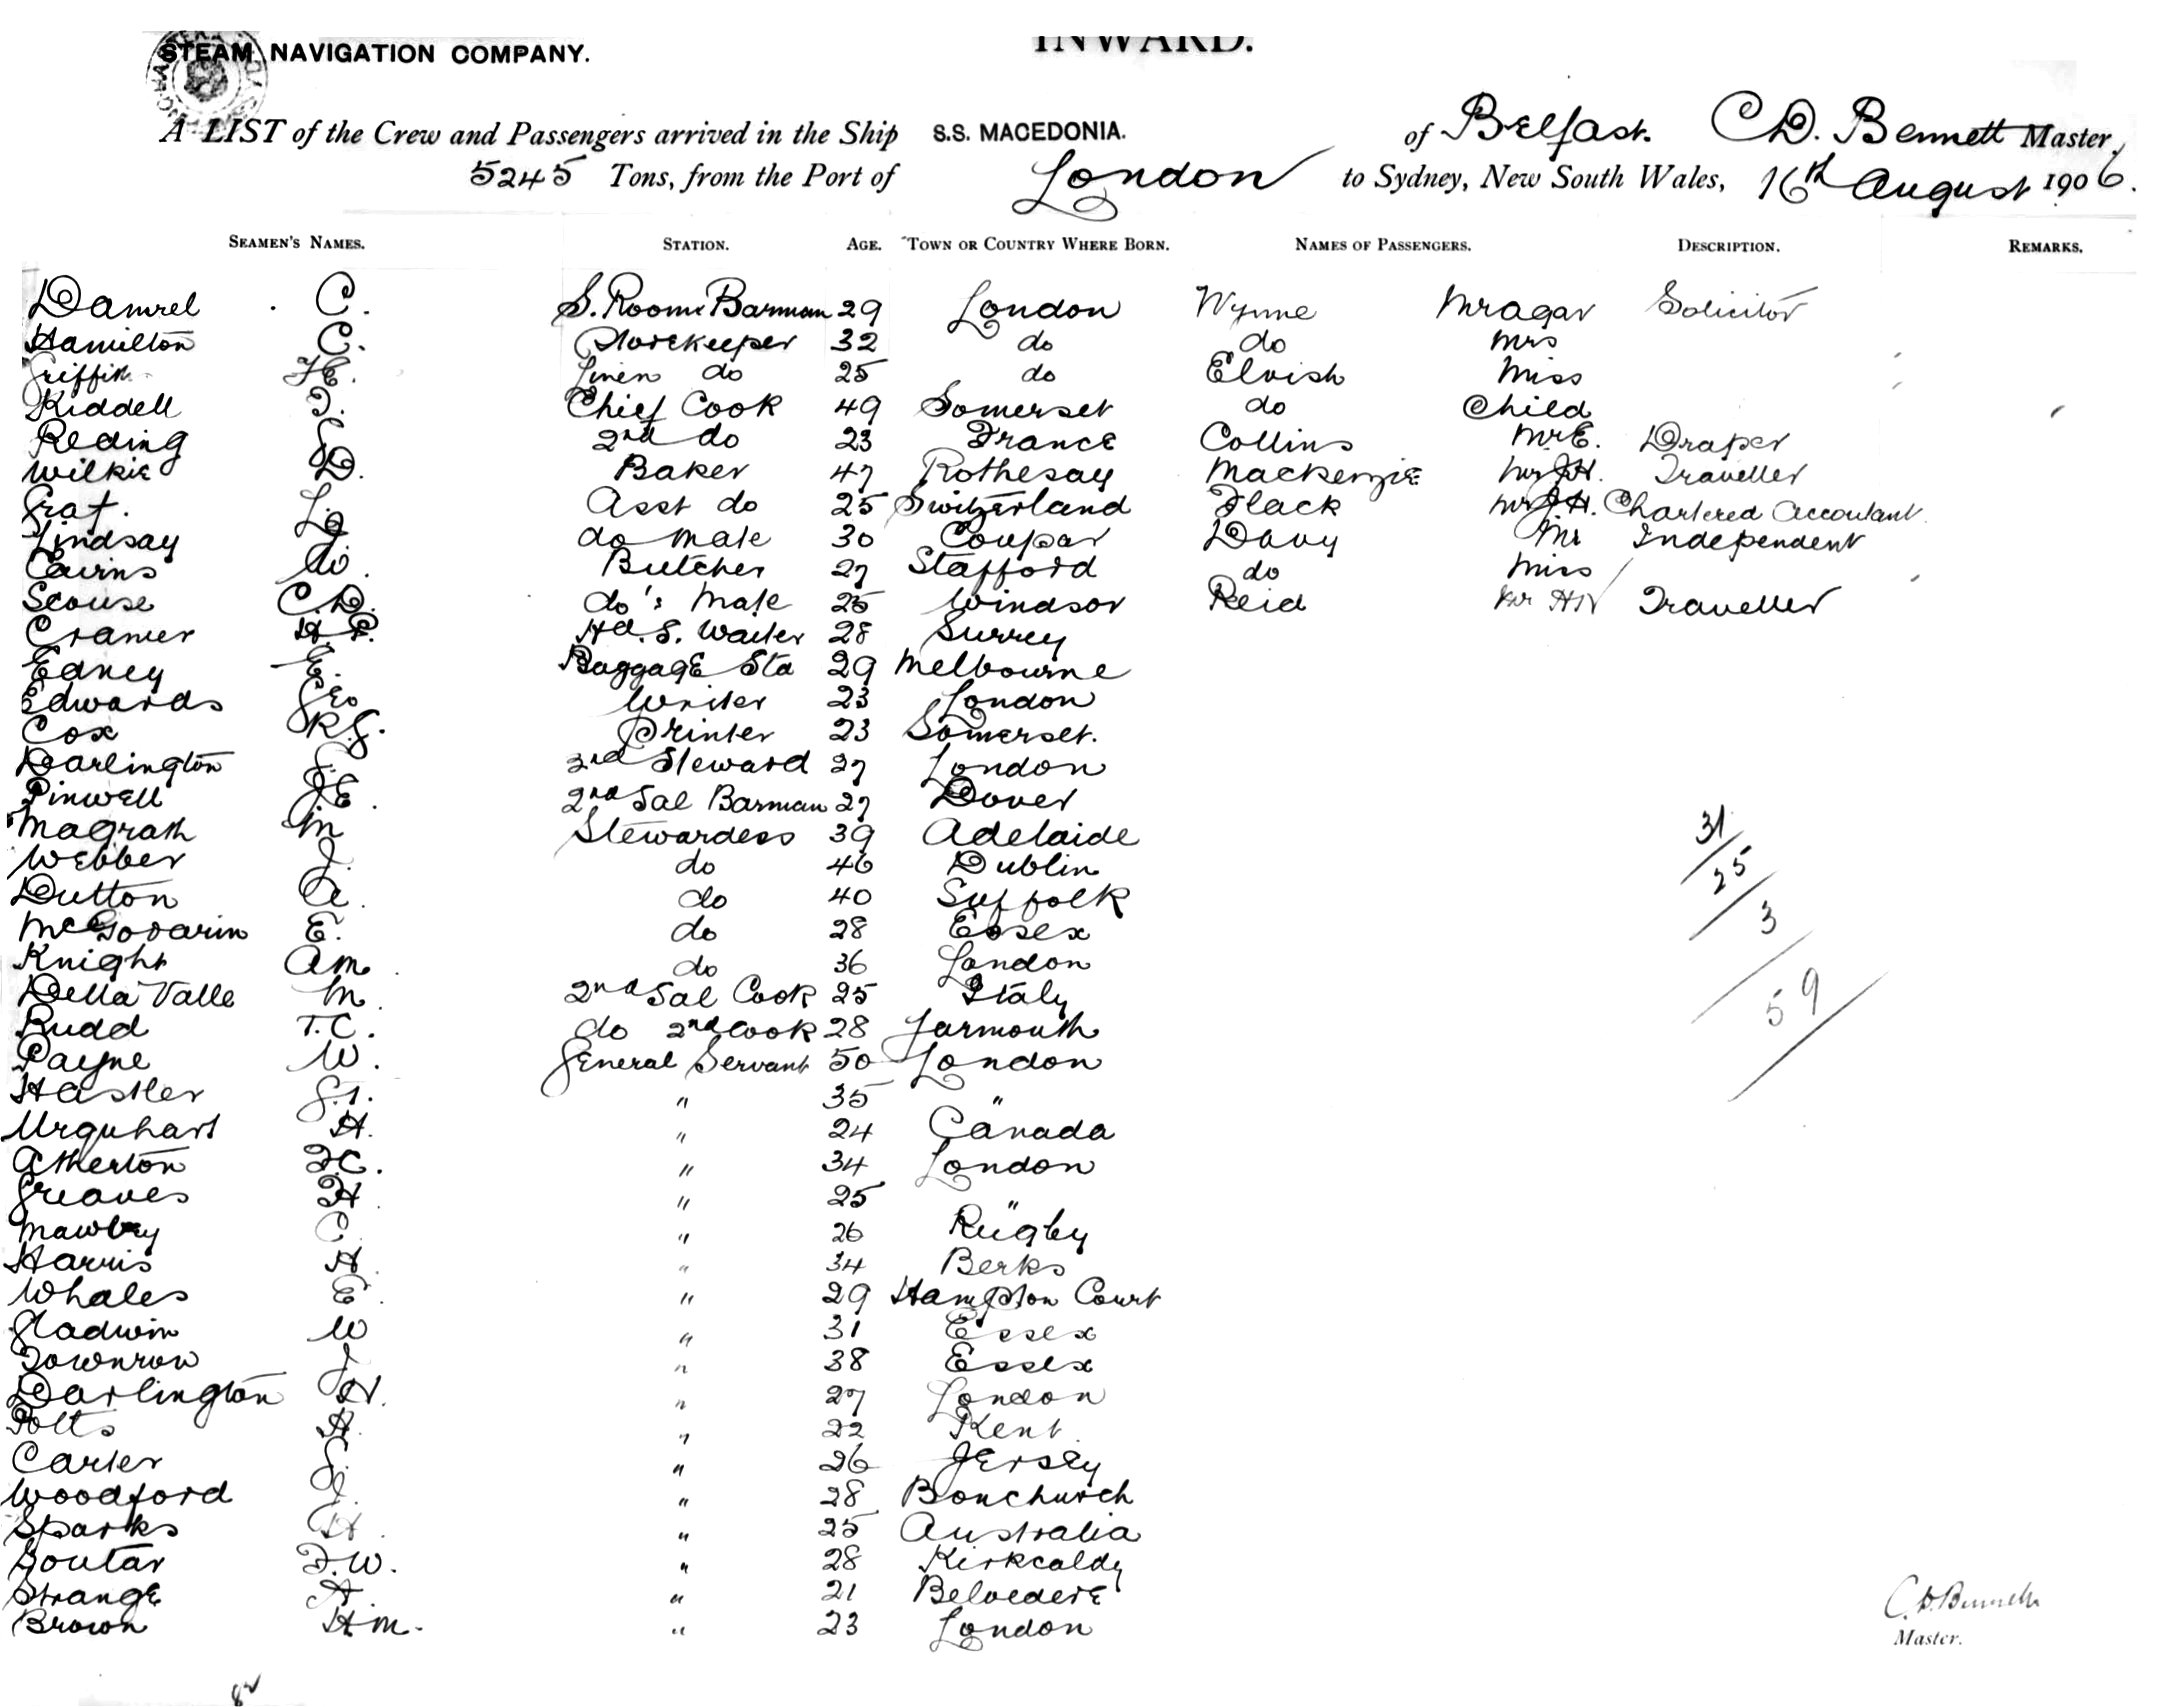 STEAM NAVIGATION COMPANY.
INWARD.
A LIST of the Crew and Passengers arrived in the Ship S.S. MACEDONIA. of Belfast. C.D. Bennett Master,
5245 Tons, from the Port of London to Sydney, New South Wales, 16th August 1906.
SEAMEN'S NAMES. STATION. AGE. TOWN OR COUNTRY WHERE BORN. NAMES OF PASSENGERS. DESCRIPTION. REMARKS.
Damrel C. S. Room Barman 29 London Wynne Solicitor
Hamilton C. Storekeeper 32 do do Mrs
Griffin Linen do 25 do Elvish Miss
Kiddell Chief Cook 49 Somerset do Child
Reding 2nd do 23 France Collins Mr E. Draper
Wilkie D. Baker 47 Rothesay Mackenzie Mr J.H. Traveller
Graf. L. Asst do 25 Switzerland Flack Mr J.H. Chartered Accountant
Lindsay do Mate 30 Coupar Davy Mr Independent
Cairns W. Butcher 27 Stafford do Miss
Scouse C.D. do's Mate 25 Windsor Reid Mr Traveller
Cramer Hd. S. Waiter 28 Surrey
Edney E. Baggage Std 29 Melbourne
Edwards Geo Writer 23 London
Cox R.G. Printer 23 Somerset.
Darlington 3rd Steward 27 London
Pinwell J.E. 2nd Sal Barman 27 Dover
Magrath M Stewardess 39 Adelaide
Webber J. do 46 Dublin
Dutton A. do 40 Suffolk
E. do 28 Essex
Knight A M. do 36 London
Della Valle M. 2nd Sal Cook 25 Italy
Rudd T.C. do 2nd Cook 28 Yarmouth
Payne W. General Servant 50 London
Hastler " 35 "
Urquhart H. " 24 Canada
Atherton F.C. " 34 London
Greaves H " 25 "
Mawbry C. " 26 Rugby
Harris H " 34 Berks
Whales E. " 29 Hampton Court
Gladwin W " 31 Essex
Townrow J " 38 Essex
Darlington W. " 27 London
Potts A. " 22 Kent
Carter G. " 26 Jersey
Woodford J. " 28 Bonchurch
Sparks H. " 25 Australia
Soutar F.W. " 28 Kirkcaldy
Strange A " 21 Belvedere
Brown H.M. " 23 London
31
25
3
59
C.D. Bennett
Master.
82